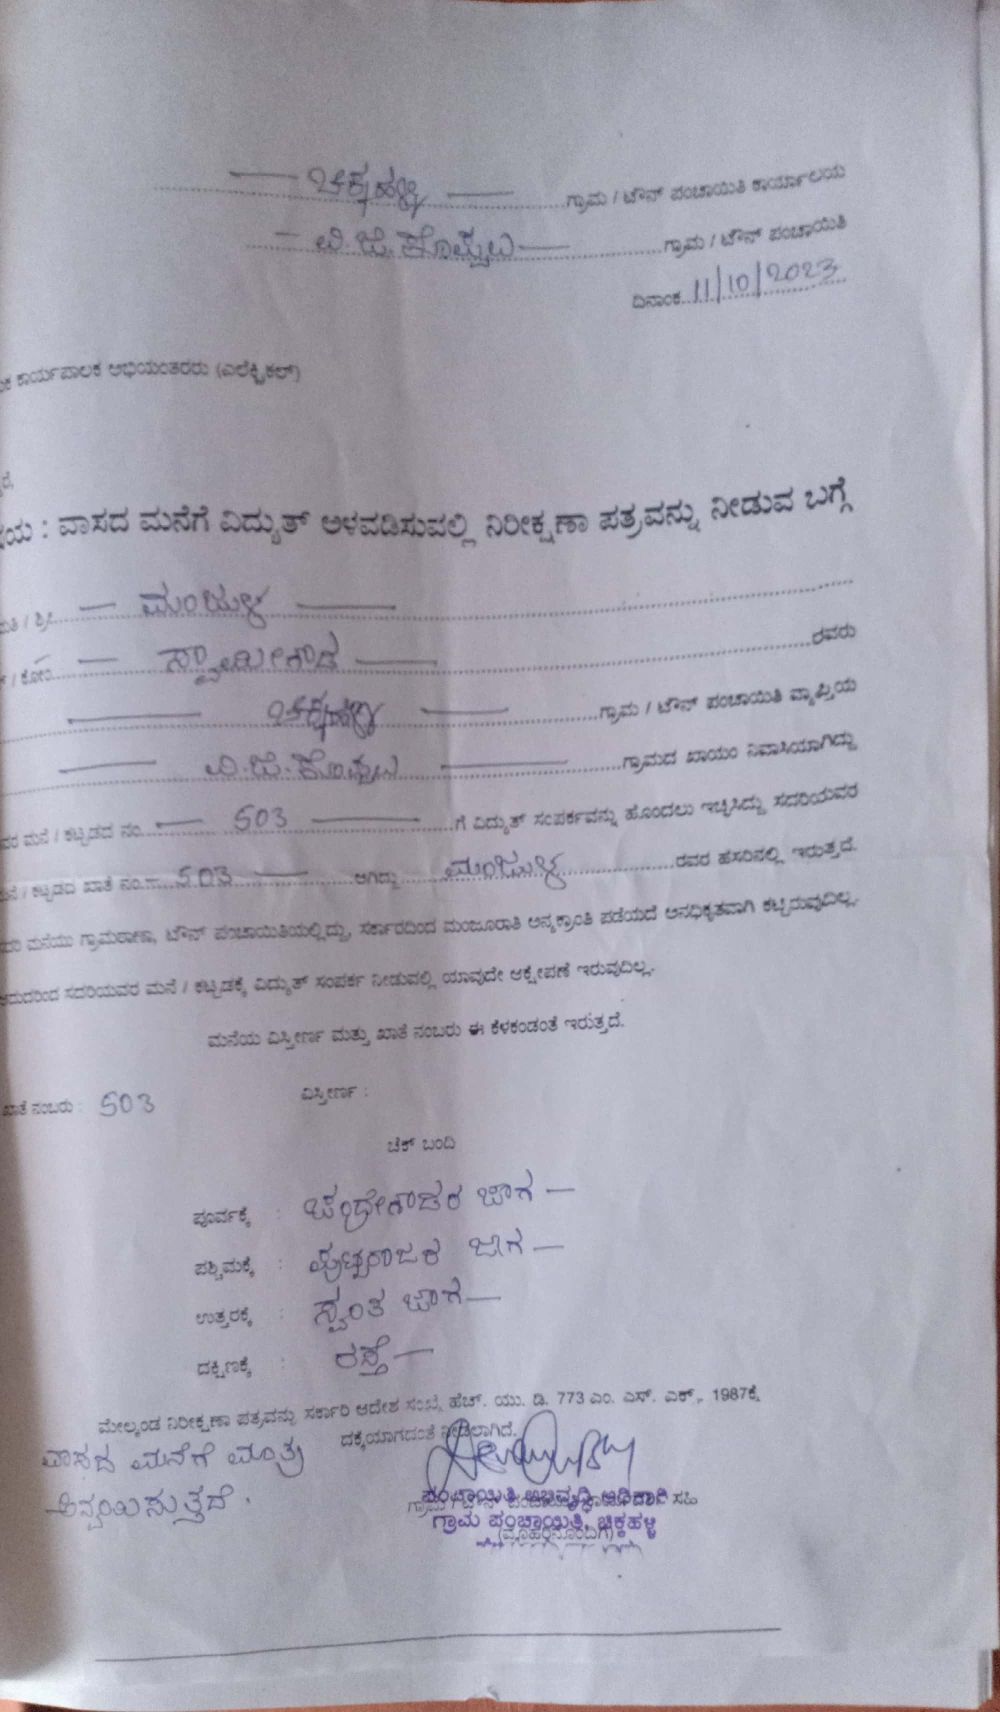 ಚಿಕ್ಕಹಳ್ಳಿ ಗ್ರಾಮ / ಟೌನ್ ಪಂಚಾಯಿತಿ ಕಾರ್ಯಾಲಯ
ವಿ.ಜಿ.ಕೊಪ್ಪಲು ಗ್ರಾಮ / ಟೌನ್ ಪಂಚಾಯಿತಿ
ದಿನಾಂಕ 11/10/2023
ಕಾರ್ಯಪಾಲಕ ಅಭಿಯಂತರರು (ಎಲೆಕ್ಟ್ರಿಕಲ್)
: ವಾಸದ ಮನೆಗೆ ವಿದ್ಯುತ್ ಅಳವಡಿಸುವಲ್ಲಿ ನಿರೀಕ್ಷಣಾ ಪತ್ರವನ್ನು ನೀಡುವ ಬಗ್ಗೆ
/ ಶ್ರೀ ಮಂಜುಳ
/ ಕೋಂ ಸ್ವಾಮೀಗೌಡ ರವರು
ಚಿಕ್ಕಹಳ್ಳಿ ಗ್ರಾಮ / ಟೌನ್ ಪಂಚಾಯಿತಿ ವ್ಯಾಪ್ತಿಯ
ವಿ.ಜಿ.ಕೊಪ್ಪಲು ಗ್ರಾಮದ ಖಾಯಂ ನಿವಾಸಿಯಾಗಿದ್ದು
ಮನೆ / ಕಟ್ಟಡದ ನಂ. 503 ಗೆ ವಿದ್ಯುತ್ ಸಂಪರ್ಕವನ್ನು ಹೊಂದಲು ಇಚ್ಛಿಸಿದ್ದು ಸದರಿಯವರ
/ ಕಟ್ಟಡದ ಖಾತೆ ನಂ. 503 ಆಗಿದ್ದು ಮಂಜುಳ ರವರ ಹೆಸರಿನಲ್ಲಿ ಇರುತ್ತದೆ.
ಮನೆಯು ಗ್ರಾಮಠಾಣಾ, ಟೌನ್ ಪಂಚಾಯಿತಿಯಲ್ಲಿದ್ದು, ಸರ್ಕಾರದಿಂದ ಮಂಜೂರಾತಿ ಅನ್ಯಕ್ರಾಂತಿ ಪಡೆಯದೆ ಅನಧಿಕೃತವಾಗಿ ಕಟ್ಟಿರುವುದಿಲ್ಲ.
ಆದುದರಿಂದ ಸದರಿಯವರ ಮನೆ / ಕಟ್ಟಡಕ್ಕೆ ವಿದ್ಯುತ್ ಸಂಪರ್ಕ ನೀಡುವಲ್ಲಿ ಯಾವುದೇ ಆಕ್ಷೇಪಣೆ ಇರುವುದಿಲ್ಲ.
ಮನೆಯ ವಿಸ್ತೀರ್ಣ ಮತ್ತು ಖಾತೆ ನಂಬರು ಈ ಕೆಳಕಂಡಂತೆ ಇರುತ್ತದೆ.
ಖಾತೆ ನಂಬರು : 503 ವಿಸ್ತೀರ್ಣ :
ಚೆಕ್ ಬಂದಿ
ಪೂರ್ವಕ್ಕೆ : ಚಂದ್ರೇಗೌಡರ ಜಾಗ
ಪಶ್ಚಿಮಕ್ಕೆ : ಪುಟ್ಟರಾಜರ ಜಾಗ
ಉತ್ತರಕ್ಕೆ : ಸ್ವಂತ ಜಾಗ
ದಕ್ಷಿಣಕ್ಕೆ : ರಸ್ತೆ
ಮೇಲ್ಕಂಡ ನಿರೀಕ್ಷಣಾ ಪತ್ರವನ್ನು ಸರ್ಕಾರಿ ಆದೇಶ ಸಂಖ್ಯೆ ಹೆಚ್. ಯು. ಡಿ. 773 ಎಂ. ಎಸ್. ಎಕ್ಸ್., 1987ಕ್ಕೆ
ನೀಡಲಾಗಿದೆ.
ವಾಸದ ಮನೆಗೆ ಮಾತ್ರ
ಅನ್ವಯಿಸುತ್ತದೆ.
ಪಂಚಾಯಿತಿ ಅಭಿವೃದ್ಧಿ ಅಧಿಕಾರಿ ಸಹಿ
ಗ್ರಾಮ ಪಂಚಾಯಿತಿ, ಚಿಕ್ಕಹಳ್ಳಿ